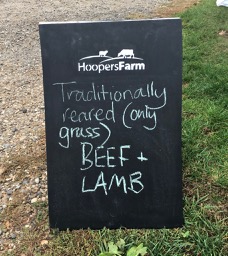 HoopersFarm
Traditionally
reared (only
grass)
BEEF +
LAMB